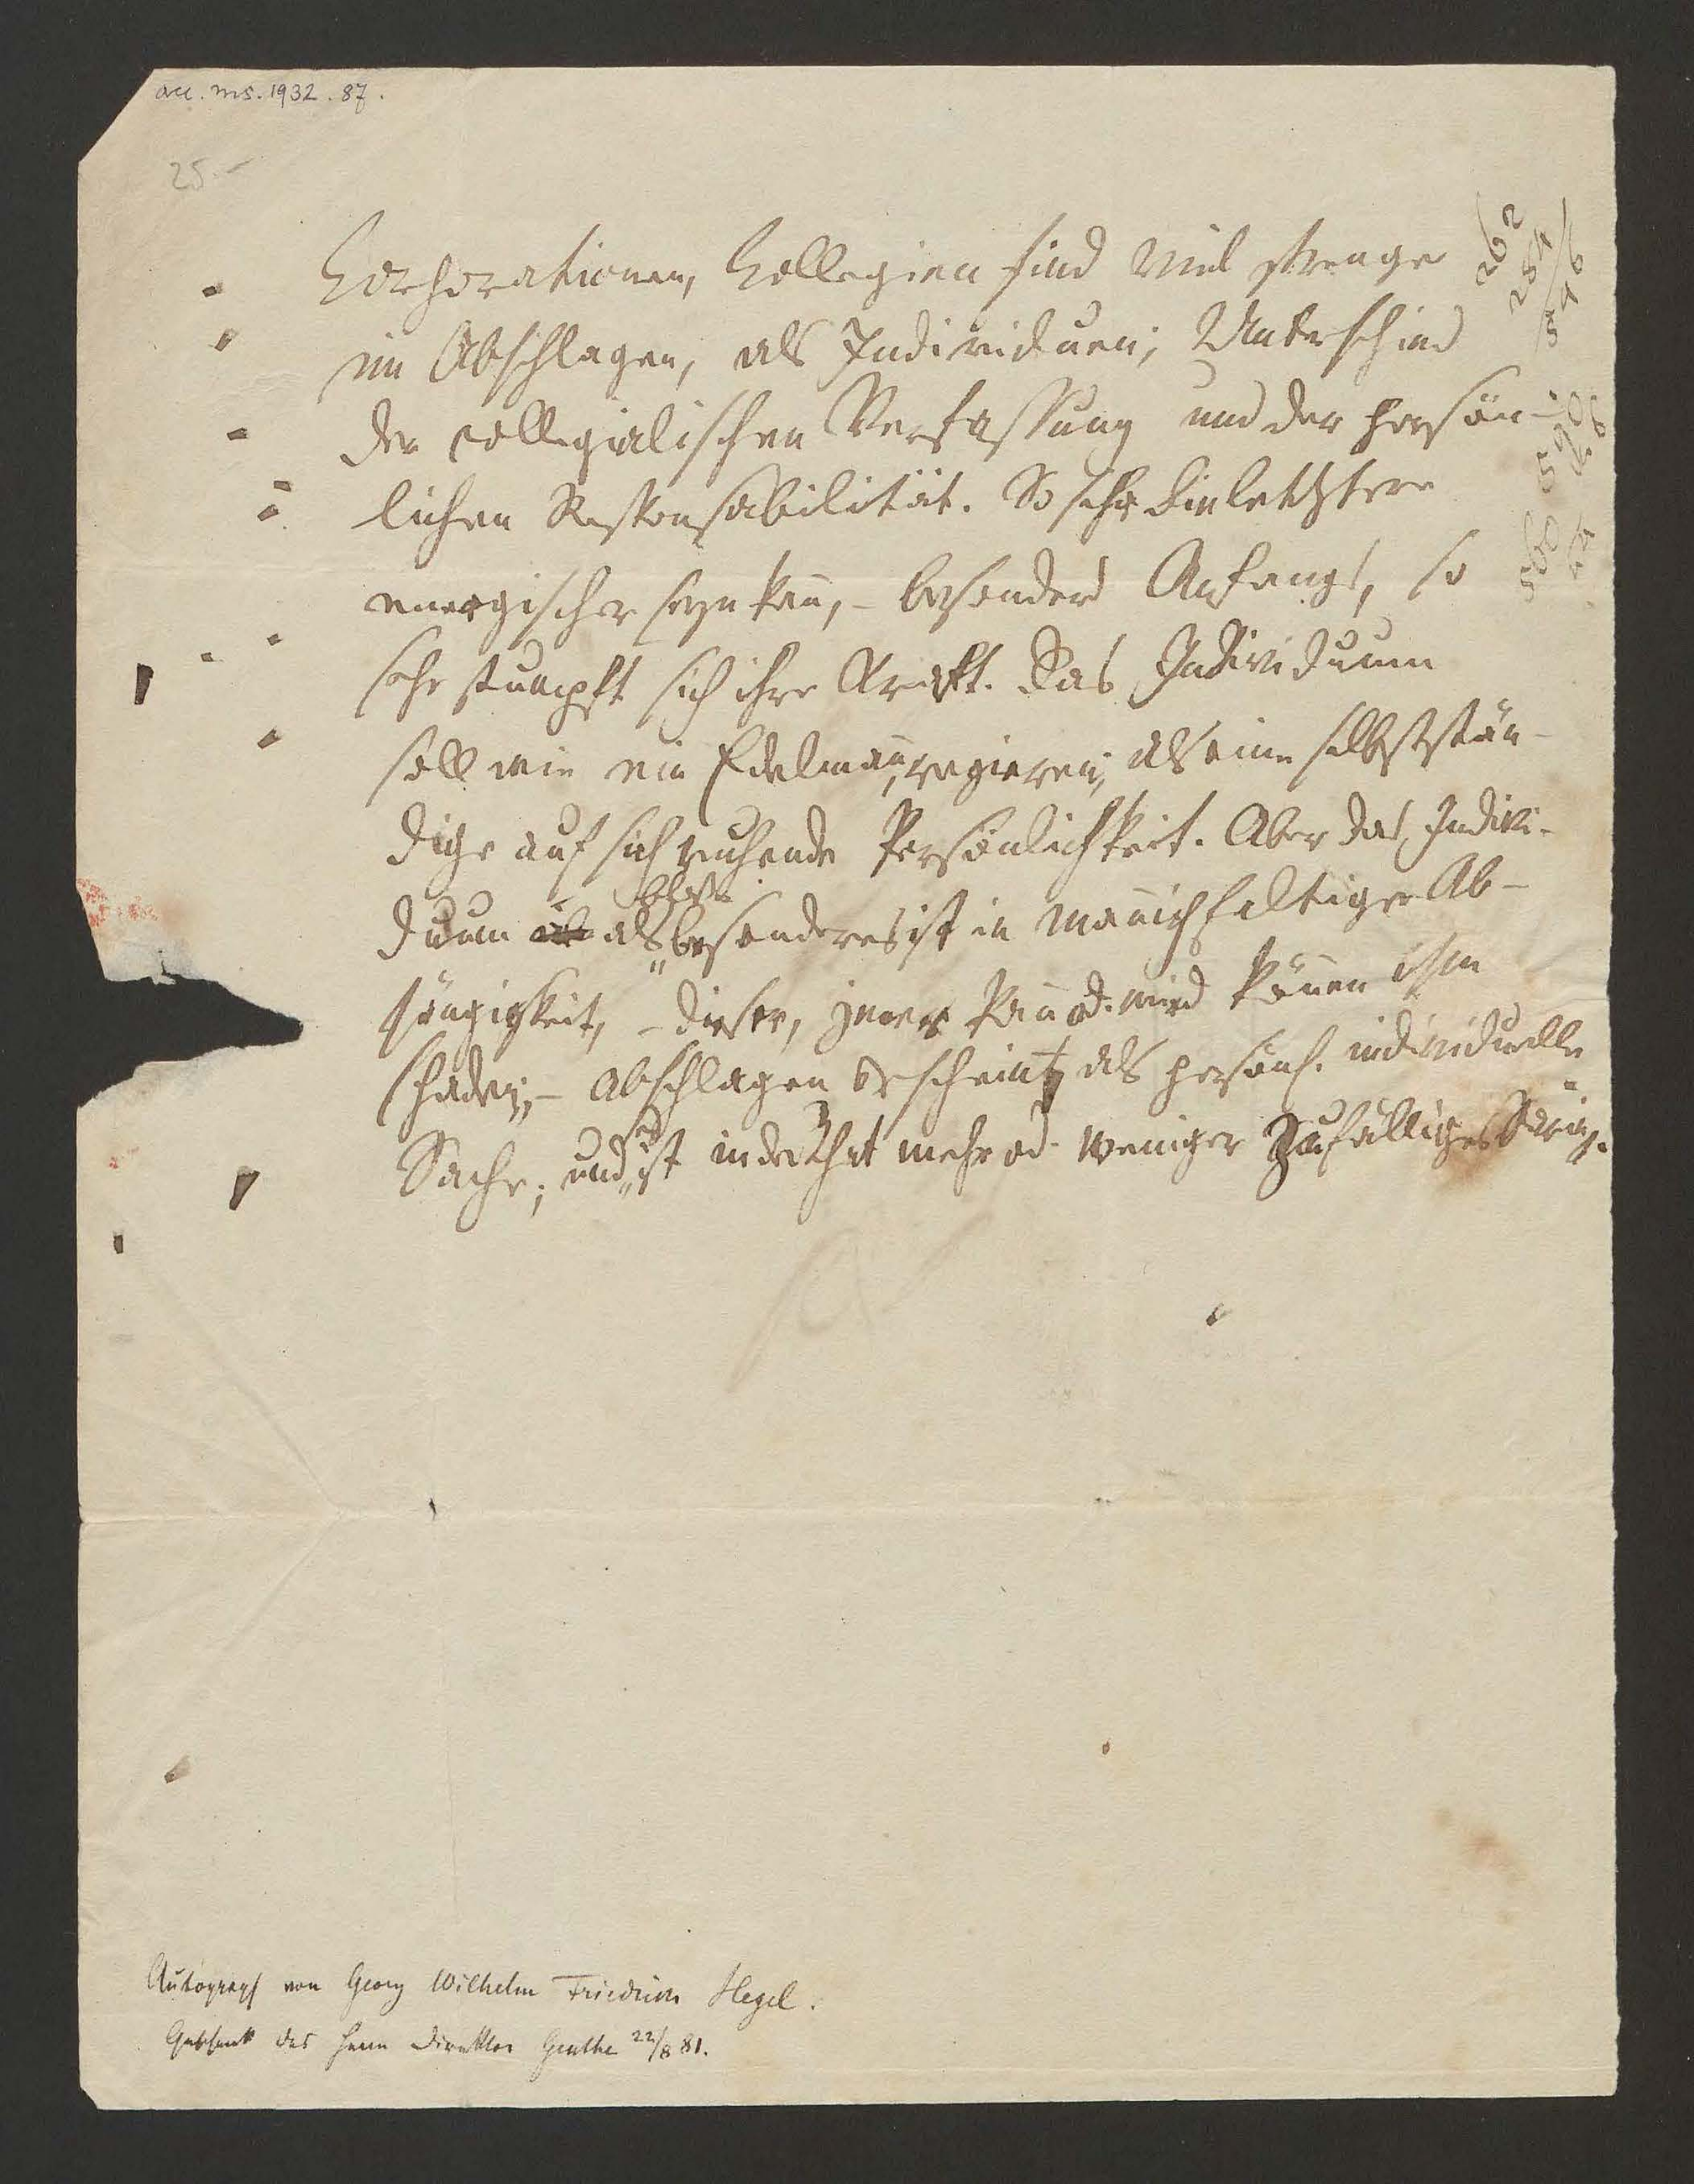 acc. ms. 1932. 87.
25.-
Corporationen, Collegien sind viel strenger
im Abschlagen, als Individuen; Unterschied
der collegialischen Verfassung und der persön-
lichen Responsabilität. So sehr die letztere
energischer seyn kan̄, – besonders Anfangs, so
sehr stumpft sich ihre Kraft. Das Individuum
soll wie ein Edelman̄, regieren, als eine selbststän-
dige auf sich ruhende Persönlichkeit. Aber das Indivi-
duum als bloß besonderes ist in man̄ichfaltiger Ab-
hängigkeit, – dieser, jener kan̄ od. wird kön̄en ihm
schaden; – Abschlagen erscheint als persönl. individuelle
Sache; und ist in der That mehr od. weniger zufälliges
262
284
546
Autograph von Georg Wilhelm Friedrich Hegel.
Geschenk des Herrn Direktor Genthe 22/8 81.